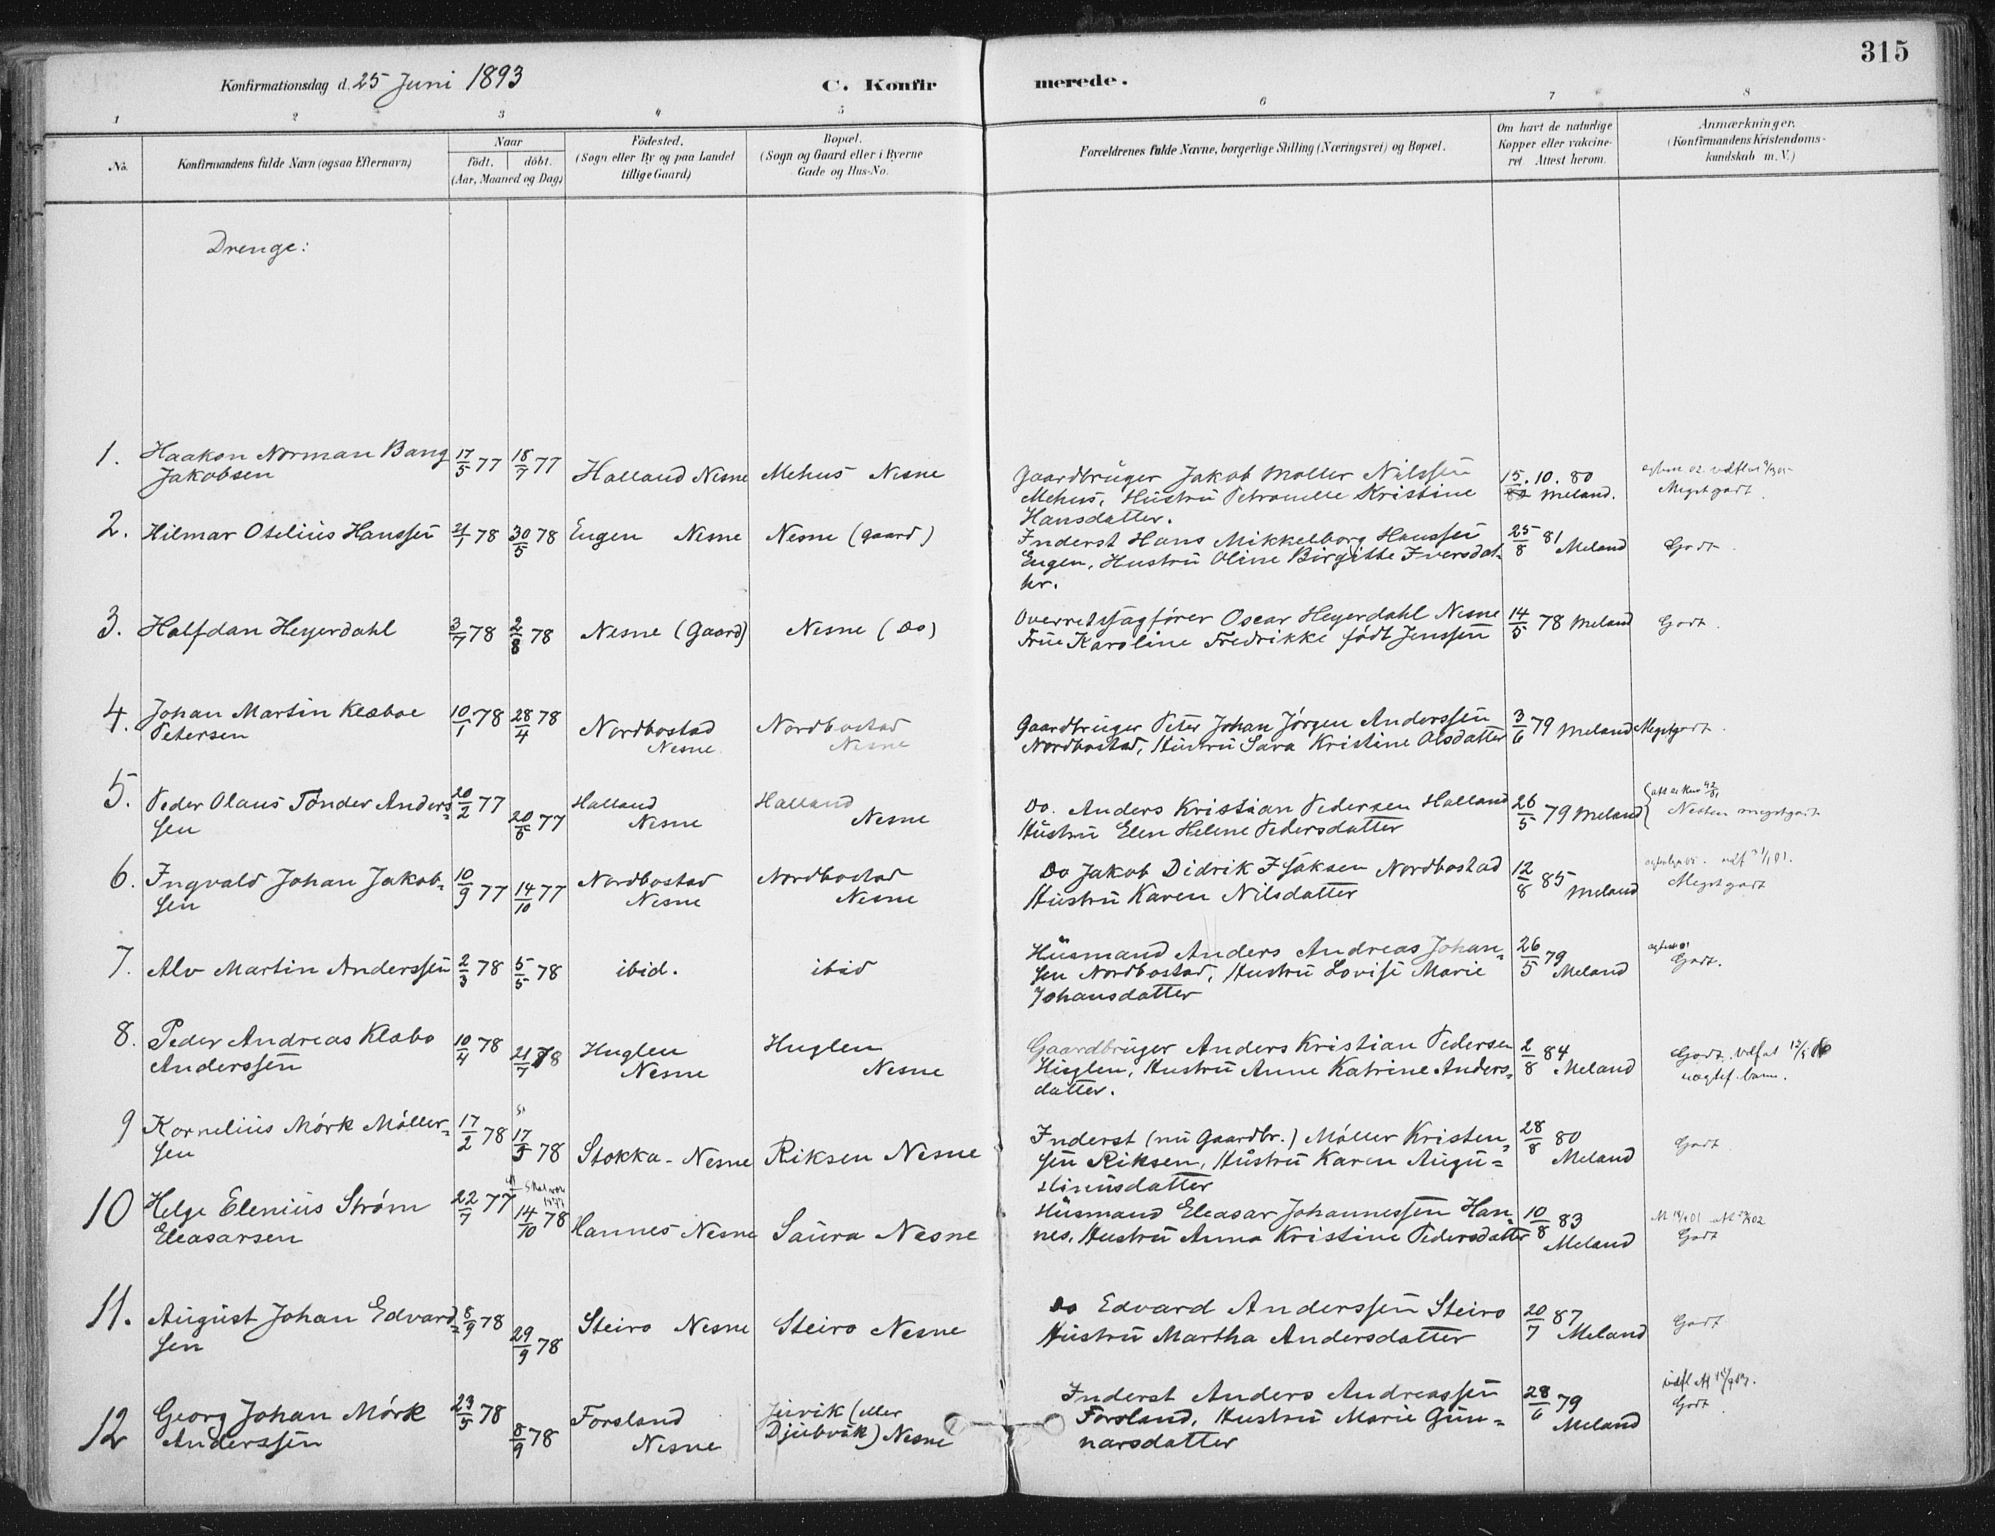 315
Konfirmationsdag d. 25 Juni 1893
C. Konfirmerede.
1 2 3 4 5 6 7 8
No.
Konfirmandens fulde Navn (ogsaa Efternavn)
Naar
födt. döbt.
(Aar, Maaned og Dag)
Födested.
(Sogn eller By og paa Landet
tillige Gaard)
Bopæl.
(Sogn og Gaard eller i Byerne
Gade og Hus-No.
Forældrenes fulde Navne, borgerlige Stilling (Næringsvei) og Bopæl.
Om havt de naturlige
Kopper eller vakcine-
ret. Attest herom.
Anmærkninger.
(Konfirmandens Kristendoms-
kundskab m. V.)
Drenge:
1. Haakon Norman Bang 17/5 77 18/7 77 Halland Nesne Mehus Nesne
Jakobsen
Gaardbruger Jakob Møller Nilssen
Mehus, Hustru Petronelle Kristine
Hansdatter.
15. 10. 80
Meland.
Megetgodt.
2. Hilmar Otelius Hanssen 21/1 78 30/5 78 Eugen Nesne Nesne (gaard)
Inderst Hans Mikkelborg Hanssen
Eugen, Hustru Oline Birgitte Iversdat-
ter.
25/8 81 Meland
Godt.
3. Halfdan Heyerdahl 3/7 78 2/8 78 Nesne (Gaard) Nesne (Do)
Overretssagfører Oscar Heyerdahl Nesne
Frue Karoline Fredrikke født Jenssen
14/5 78 Meland
Godt.
4. Johan Martin Klæboe 10/1 78 28/4 78 Nordbostad Nordbostad
Petersen Nesne. Nesne
Gaardbruger Peter Johan Jørgen Anderssen
Nordbostad, Hustru Sara Kristine Olsdatter
3/6 79 Meland
Megetgodt.
5. Peder Olaus Tønder Anders- 20/2 77 20/5 77 Halland Halland
sen Nesne Nesne
Do. Anders Kristian Pedersen Halland
Hustru Elen Helene Pedersdatter
26/5 79 Meland
Nesten megetgodt
6. Ingvald Johan Jakob- 10/9 77 14/10 77 Nordbostad Nordbostad
sen Nesne Nesne
Do Jakob Didrik Isaksen Nordbostad
Hustru Karen Nilsdatter
12/8 85 Meland
Megetgodt
7. Alv Martin Anderssen 2/3 78 5/5 78 ibid. ibid
Husmand Anders Andreas Johan-
sen Nordbostad, Hustru Lovise Marie
Johansdatter
26/5 79 Meland
Godt.
8. Peder Andreas Klæbo 10/4 78 21/7 78 Huglen Huglen
Anderssen Nesne Nesne
Gaardbruger Anders Kristian Pedersen
Huglen, Hustru Anne Katrine Anders-
datter.
2/8 84 Meland
Godt.
9 Kornelius Mörk Möller- 17/2 78 17/3 78 Stokka - Nesne Riksen Nesne
sen
Inderst (nu Gaardbr.) Møller Kristen-
sen Riksen, Hustru Karen Augu-
stinusdatter
28/8 80 Meland
Godt
10 Helge Elenius Strøm 22/7 77 14/10 78 Hannes Nesne Saura Nesne
Eleasarsen
Husmand Eleasar Johannessen Han-
nes, Hustru Anna Kristine Pedersdatter
10/8 83 Meland
Godt
11. August Johan Edvard- 8/9 78 29/9 78 Steiro Nesne Steiro Nesne
sen
Do Edvard Anderssen Steiro
Hustru Martha Andersdatter
20/7 87 Meland
Godt
12 Georg Johan Mörk 23/5 78 8/9 78 Forsland Juvik (eller
Anderssen Nesne Djubvik) Nesne
Inderst Anders Andreassen
Forsland, Hustru Marie Gun-
narsdatter
28/6 79 Meland
Godt.